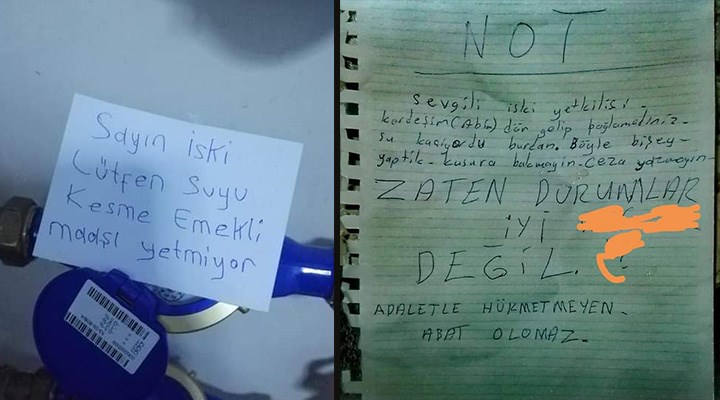 Sayın iski
Lütfen suyu
Kesme Emekli
maaşı yetmiyor
NOT
Sevgili iski yetkilisi-
kardeşim(Abim) dön gelip bağlamadınız-
su kaçıyordu burdan. Böyle bişey-
yaptık- kusura bakmayın- ceza yazmayın-
ZATEN DURUMLAR
İYİ
DEĞİL.
ADALETLE HÜKMETMEYEN-
ABAT OLOMAZ-